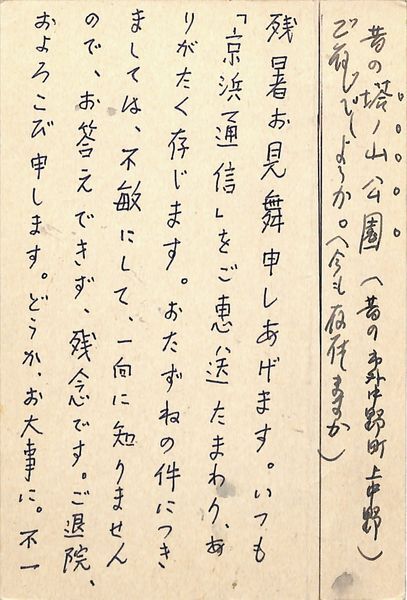 昔の塔ノ山公園(昔の東中野町上中野)
ご存じでしようか。(今も存在ますか)
残暑お見舞申しあげます。いつも
「京浜通信」をご恵送たまわり、あ
りがたく存じます。おたずねの件につき
ましては、不敏にして、一向に知りません
ので、お答えできず、残念です。ご退院、
およろこび申します。どうか、お大事に。不一